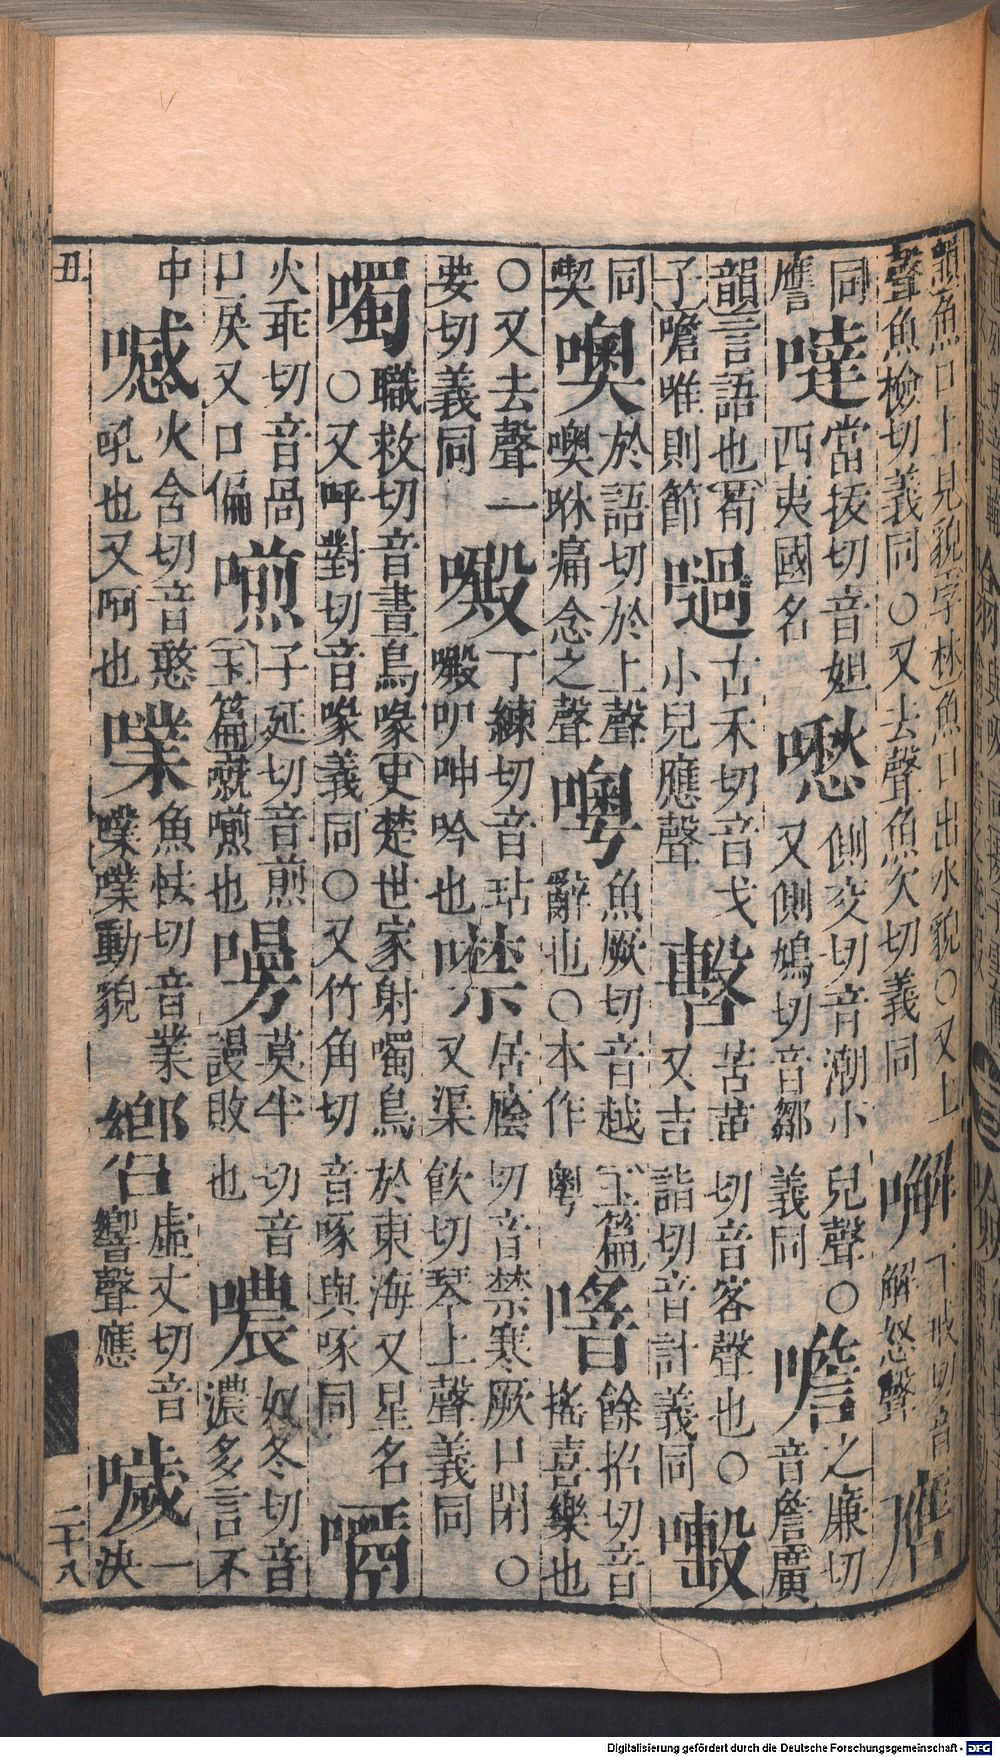 韻魚口上見貌字林魚口出水貌○又上
聲魚檢切義同○又去聲魚欠切義同
噅
下戒切音
解怒聲
噟
同
譍
噠
當拔切音妲
西夷國名
㗙
側交切音潮小兒聲○
又側鳩切音鄒義同
噡
之廉切
音詹廣
韻言語也荀
子噡唯則節
過
古禾切音戈
小兒應聲
苦茁切音客聲也○
又吉詣切音計義同
同
喫
噢
於語切於上聲
噢咻痛念之聲
噊
魚厥切音越玉篇
辭也○本作粵
嘻
餘招切音
搖喜樂也
○又去聲一
要切義同
㗾
丁練切音玷
噘叩呻吟也
噤
居廕切音禁寒厥口閉○
又渠飲切琴上聲義同
噣
職救切音晝鳥喙史楚世家射噣鳥於東海又星名
○又呼對切音喙義同○又竹角切音啄與啄同
嚼
火乖切音咼
口戾又口偏
㗴
子延切音煎
玉篇㗱㗴也
嘪
莫半切音
謾敗也
噥
奴冬切音
濃多言不
中
㘎
火含切音憨
吼也又呵也
㗼
魚怯切音業
㗼㗼動貌
嚮
虛丈切音
響聲應
噦
一
決
丑
二十八
Digitalisierung gefördert durch die Deutsche Forschungsgemeinschaft - DFG